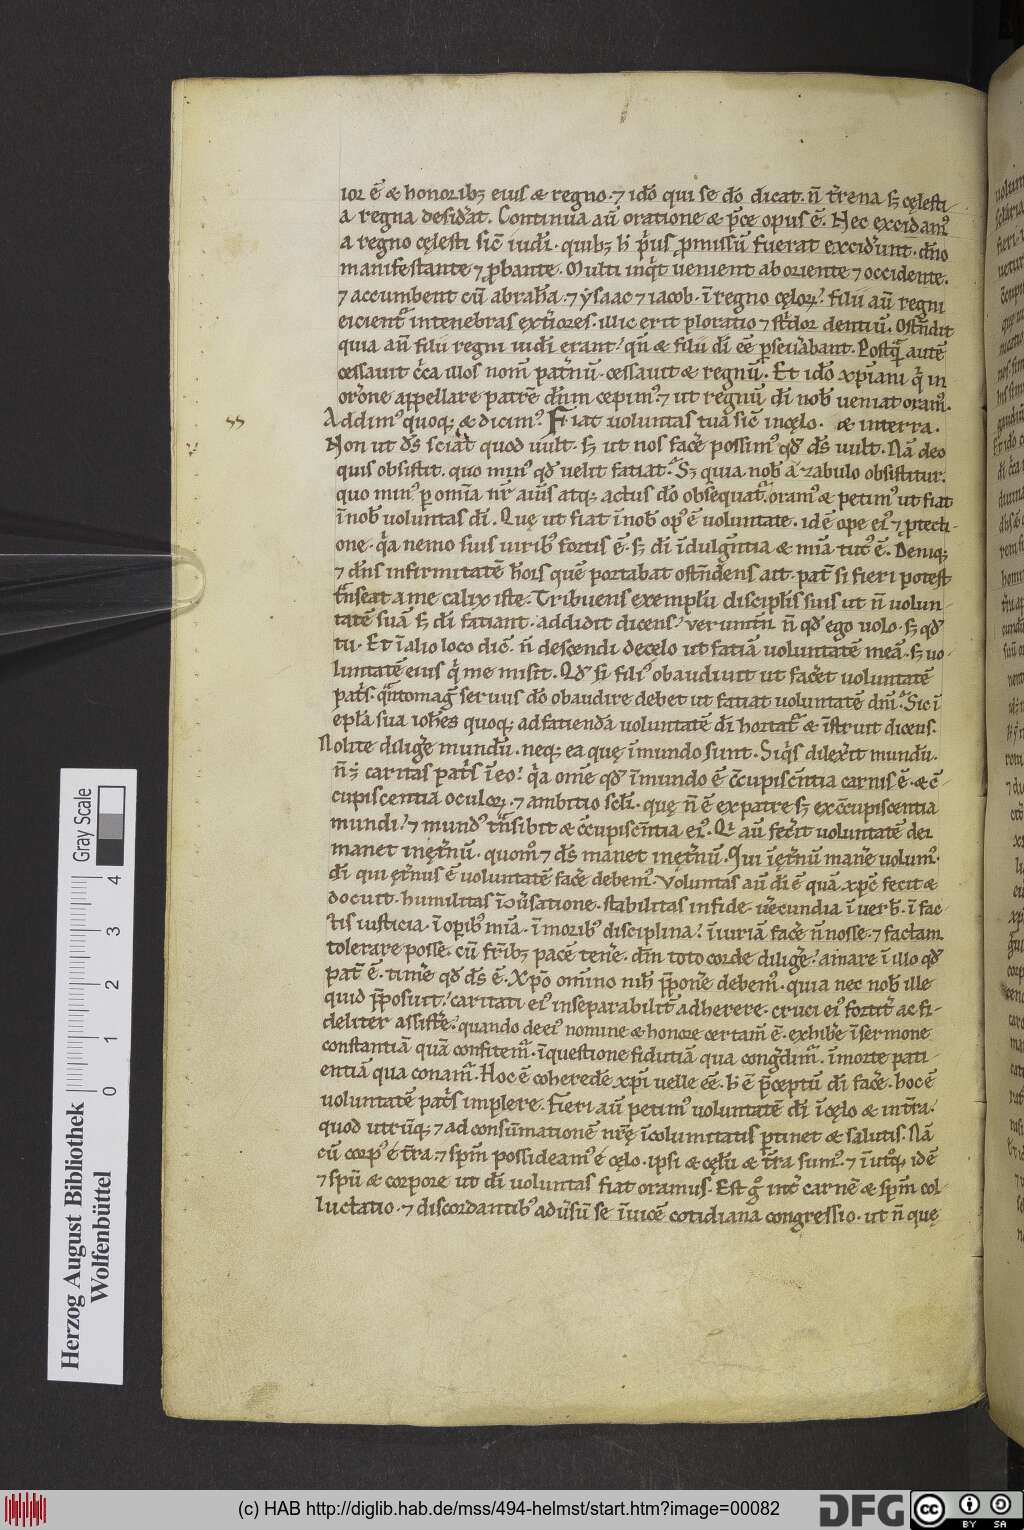 ior ē & honorib; eius & regno· ⁊ iđo qui se dō dicat· n̄ t̄rena sꝫ cęlesti
a regna desid̾at. Continua aū oratione & p̄ce opus ē. Nec excidam᷒
a regno cęlesti sič iudi· quib; h̄ p̾us ꝓmissū fuerat excider̄unt· dn̄o
manifestante ⁊ ꝓbante. Multi inq̇t uenient ab oriente ⁊ occidente.
⁊ accumbent cū abrah̄a· ⁊ ẏsaac ⁊ iacob· ī regno cęloꝝ. filii aū regni
eicient᷑ in tenebras ext̾iores· illic erit ploratio ⁊ st̾dor dentiū. Ostn̄dit
quia aū filii regni iudi erant· qn̄ & filii dī eē ꝑseu̾abant. Postq̄ autē
cessauit c̾ca illos nom̄ pat̾nū· cessauit & regnū. Et iđo xp̄iani q̇ in
orōne appellare patrē dn̄m cepim᷒· ⁊ ut regnū dī nob̄ ueniat oram᷒.
Addim᷒ quoq; & dicim᷒. Fiat uoluntas tua sič in cęlo· & in terra·
Non ut dš sciat quod uult· sꝫ ut nos fac̾e possim᷒ qđ dš uult. Nā deo
quis obsistit· quo min᷒ qđ uelit fatiat. Sꝫ quia nob̄ a zabulo obsistitur.
quo min᷒ ꝑ omīa nr̄ aīus atq; actus dō obsequat᷑. oram᷒ & petim᷒ ut fiat
ī nob̄ uoluntas dī. Quę ut fiat ī nob̄ op᷒ ē uoluntate· idē ope ei᷒ ⁊ ꝓtecti-
one· q̄a nemo suis uirib᷒ fortis ē· sꝫ dī īdulgn̄tia & mīa tut᷒ ē. Deniq;
⁊ dn̄s infirmitatē hōis quē portabat ostn̄dens ait· pat̄ si fieri potest
t̄nseat a me calix iste. Tribuens exemplū disciplīs suis ut n̄ uolun
tatē suā sꝫ dī fatiant· addidit dicens· uerumtn̄ n̄ qđ ego uolo· sꝫ qđ
tu. Et ī alio loco dič. n̄ descendi de celo ut fatiā uoluntatē meā· sꝫ uo-
luntatē eius q̇ me misit. Qđ si fili᷒ obaudiuit ut fac̾et uoluntatē
pat̾s· qn̄tomaḡ seruus dō obaudire debet ut fatiat uoluntatē dn̄i. Sič ī
epl̄a sua ioh̄es quoq; ad fatienda uoluntatē dī hortat᷑ & īstruit dicens.
Nolite dilig̾e mundū· neq; ea quę ī mundo sunt. Siq̇s dilex̾it mundū·
n̄ ꝫ caritas pat̾s ī eo. q̄a om̄e qđ ī mundo ē c̄cupisčntia carnis ē· & c̄
cupiscentia oculoꝝ· ⁊ ambitio scl̄i· quę n̄ ē ex patre sꝫ ex c̄cupiscentia
mundi· ⁊ mund᷒ t̄nsibit & c̄cupisčntia ei᷒. Qi aū fec̾it uoluntatē dei
manet in ęt̾nū· quom᷒ ⁊ dš manet in ęt̾nū. Qui ī ęt̾nū man̾e uolum᷒·
dī qui ęt̾nus ē uoluntatē fac̾e debem᷒. Voluntas aū dī ē quā xpč fecit &
docuit· humilitas ī ꝯu̾satione· stabilitas in fide· u̾ecundia ī uerb̄· ī fac-
tis iusticia· ī oꝑib᷒ mīa· ī morib᷒ disciplina· īiuriā fac̾e n̄ nosse· ⁊ factam
tolerare posse· cū fr̄ib; pacē ten̾e· dn̄m toto corde dilig̾e· amare ī illo qđ
pat̄ ē· tim̾e qđ dš ē. Xp̄o om̄ino nih̄ p̄pon̾e debem᷒· quia nec nob̄ ille
quid p̄posuit· caritati ei᷒ inseparabilit̄ adherere· cruci ei᷒ fortit̄ ac fi-
deliter assist̾e· quando de ei᷒ nomine & honore certam̄ ē· exhib̾e ī sermone
constantiā quā confitem᷑· ī questione fidutiā qua congdim᷑· ī morte pati
entiā qua conam᷑. Hoc ē coheredē xp̄i uelle eē. h̄ ē p̄ceptū dī fac̾e· hoc ē
uoluntatē pat̾s implere. Fieri aū petim᷒ uoluntatē dī ī cęlo & in t̄ra.
quod utrūq; ⁊ ad consūmationē nr̄ę īcolumitatis ꝑtinet & salutis. Nā
cū corp᷒ ē t̄ra· ⁊ spm̄ possideam᷒ e cęlo· ipsi & cęlū & t̄ra sum᷒· ⁊ ī utq, idē
⁊ spū & corpore ut dī uoluntas fiat oramus. Est ḡ int̾ carnē & spm̄ col-
luctatio· ⁊ discordantib᷒ adu̾sū se īuicē cotidiana congressio· ut n̄ quę
Herzog August Bibliothek
Wolfenbüttel
Gray Scale
0 1 2 3 4
(c) HAB http://diglib.hab.de/mss/494-helmst/start.htm?image=00082
DFG
cc BY SA